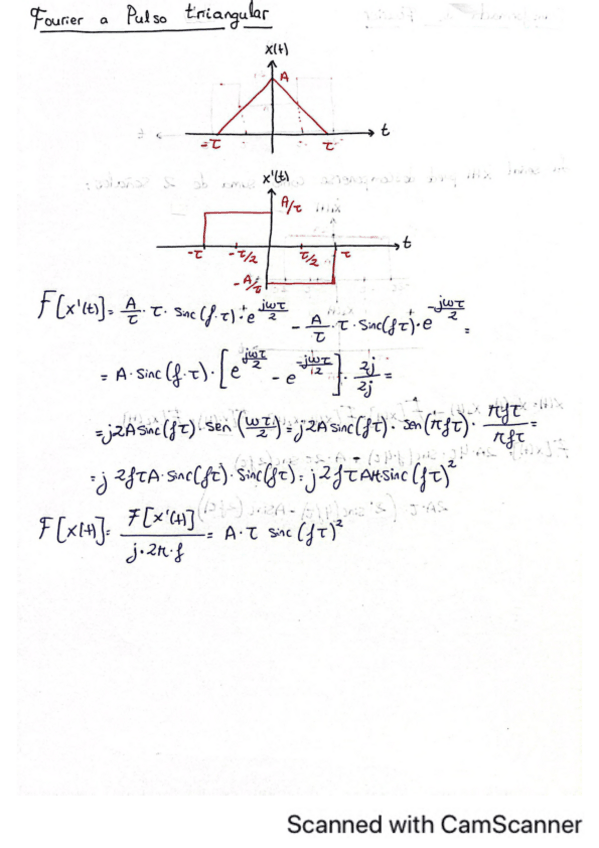 Fourier a Pulso triangular
x(t)
A
t
-τ τ
x'(t)
A/τ
-τ -τ/2 τ/2 τ t
-A/τ
F[x'(t)]= A/τ · τ · sinc(f·τ)·e^(jωτ/2) - A/τ · τ · sinc(fτ)·e^(-jωτ/2) =
= A·sinc(f·τ)·[e^(jωτ/2) - e^(-jωτ/2)] · 2j/2j =
=j2A sinc(fτ)·sen(ωτ/2)=j2A sinc(fτ)·sen(πfτ)· πfτ/πfτ =
=j 2fτA·sinc(fτ)·sinc(fτ)=j2fτAπ sinc(fτ)²
F[x(t)]= F[x'(t)]/j·2π·f = A·τ sinc(fτ)²
Scanned with CamScanner